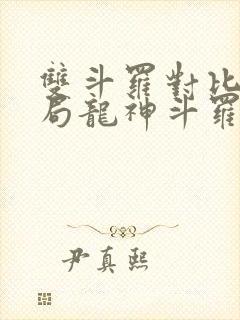 雙斗羅對比
局龍神斗羅
尹真熙